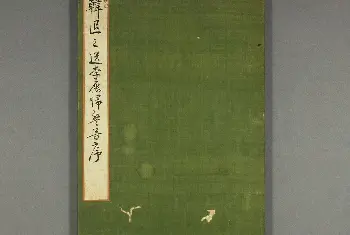 韓退之送李愿歸盤谷序